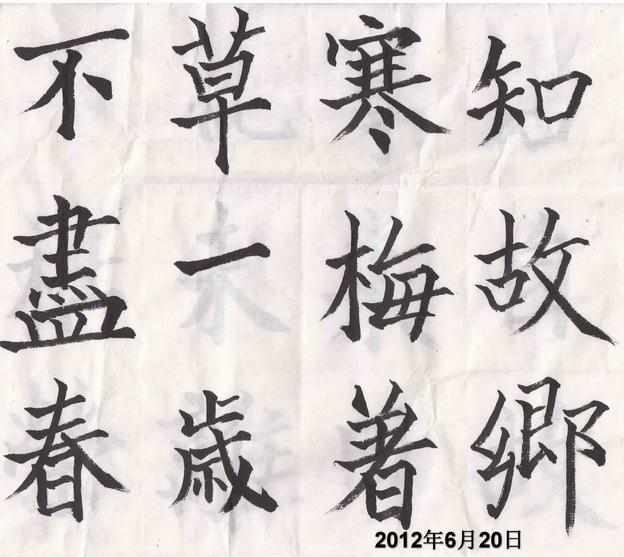 知故鄉
寒梅著
草一歲
不盡春
2012年6月20日